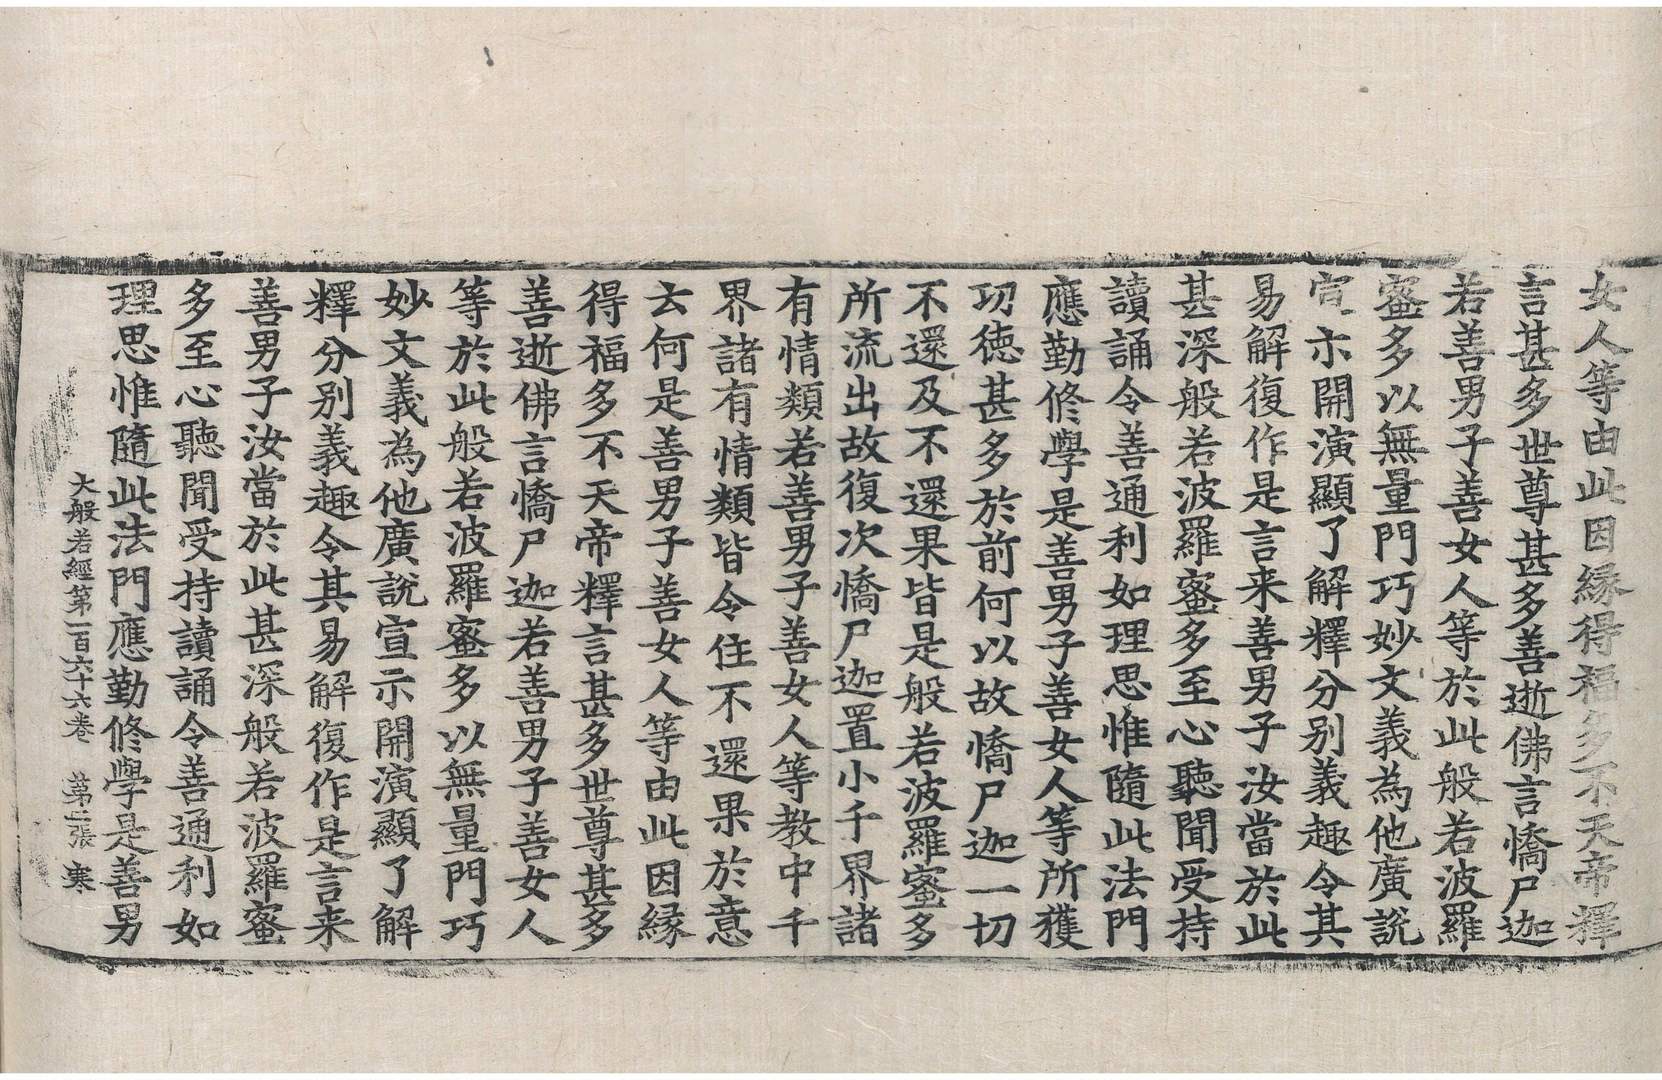 女人等由此因緣得福多不天帝釋
言甚多世尊甚多善逝佛言憍尸迦
若善男子善女人等於此般若波羅
蜜多以無量門巧妙文義為他廣說
宣示開演顯了解釋分別義趣令其
易解復作是言来善男子汝當於此
甚深般若波羅蜜多至心聽聞受持
讀誦令善通利如理思惟隨此法門
應勤修學是善男子善女人等所獲
功德甚多於前何以故憍尸迦一切
不還及不還果皆是般若波羅蜜多
所流出故復次憍尸迦置小千界諸
有情類若善男子善女人等教中千
界諸有情類皆令住不還果於意
云何是善男子善女人等由此因緣
得福多不天帝釋言甚多世尊甚多
善逝佛言憍尸迦若善男子善女人
等於此般若波羅蜜多以無量門巧
妙文義為他廣說宣示開演顯了解
釋分別義趣令其易解復作是言来
善男子汝當於此甚深般若波羅蜜
多至心聽聞受持讀誦令善通利如
理思惟隨此法門應勤修學是善男
大般若經第一百六十六卷 第二張 寒